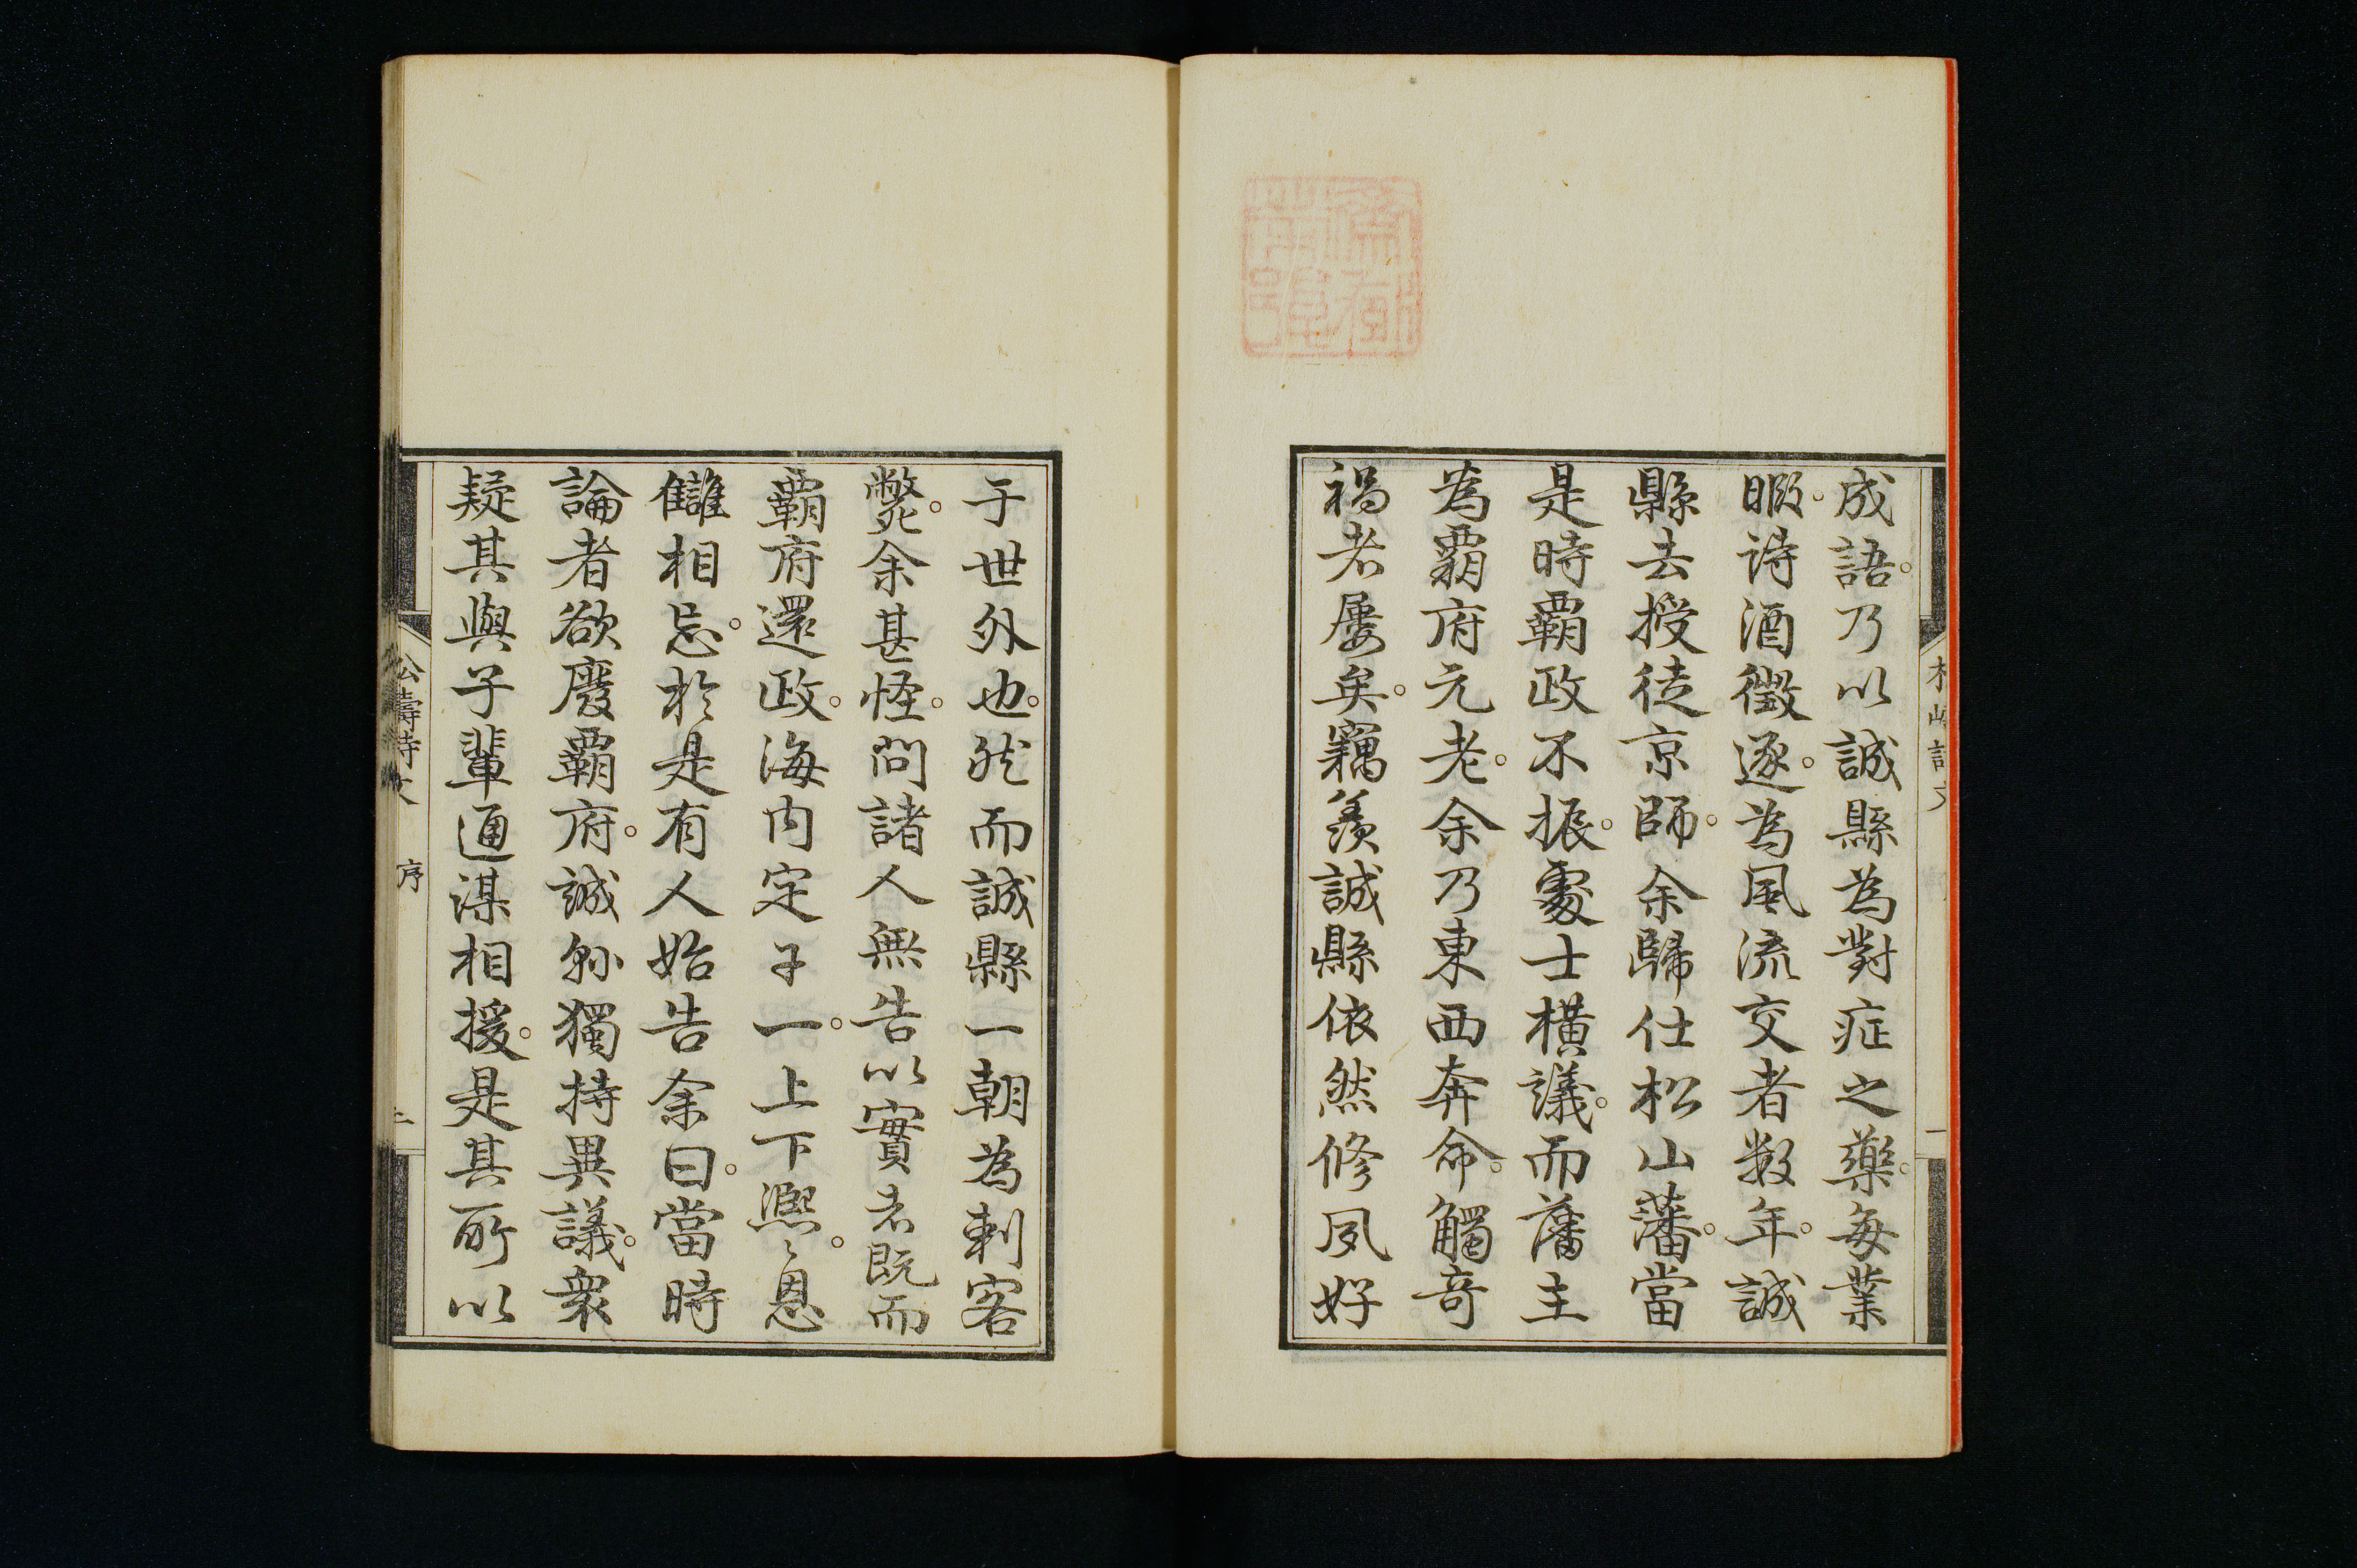 成語。乃以誠縣為對症之藥。每業
暇。诗酒徵逐。為風流交者数年。誠
縣去授徒京師。余歸仕松山藩。當
是時覇政不振。處士橫議。而藩主
為覇府元老。余乃東西奔命。觸奇
禍者屡矣。竊羨誠縣依然修夙好
于世外也。然而誠縣一朝為刺客
斃。余甚怪。問諸人無告以實者既而
覇府還政。海内定于一。上下熈〻。恩
讎相忘。於是有人始告余曰。當時
論者欲廢覇府。誠縣獨持異議。衆
疑其與子輩通謀相援。是其所以
公壽詩文 序 二